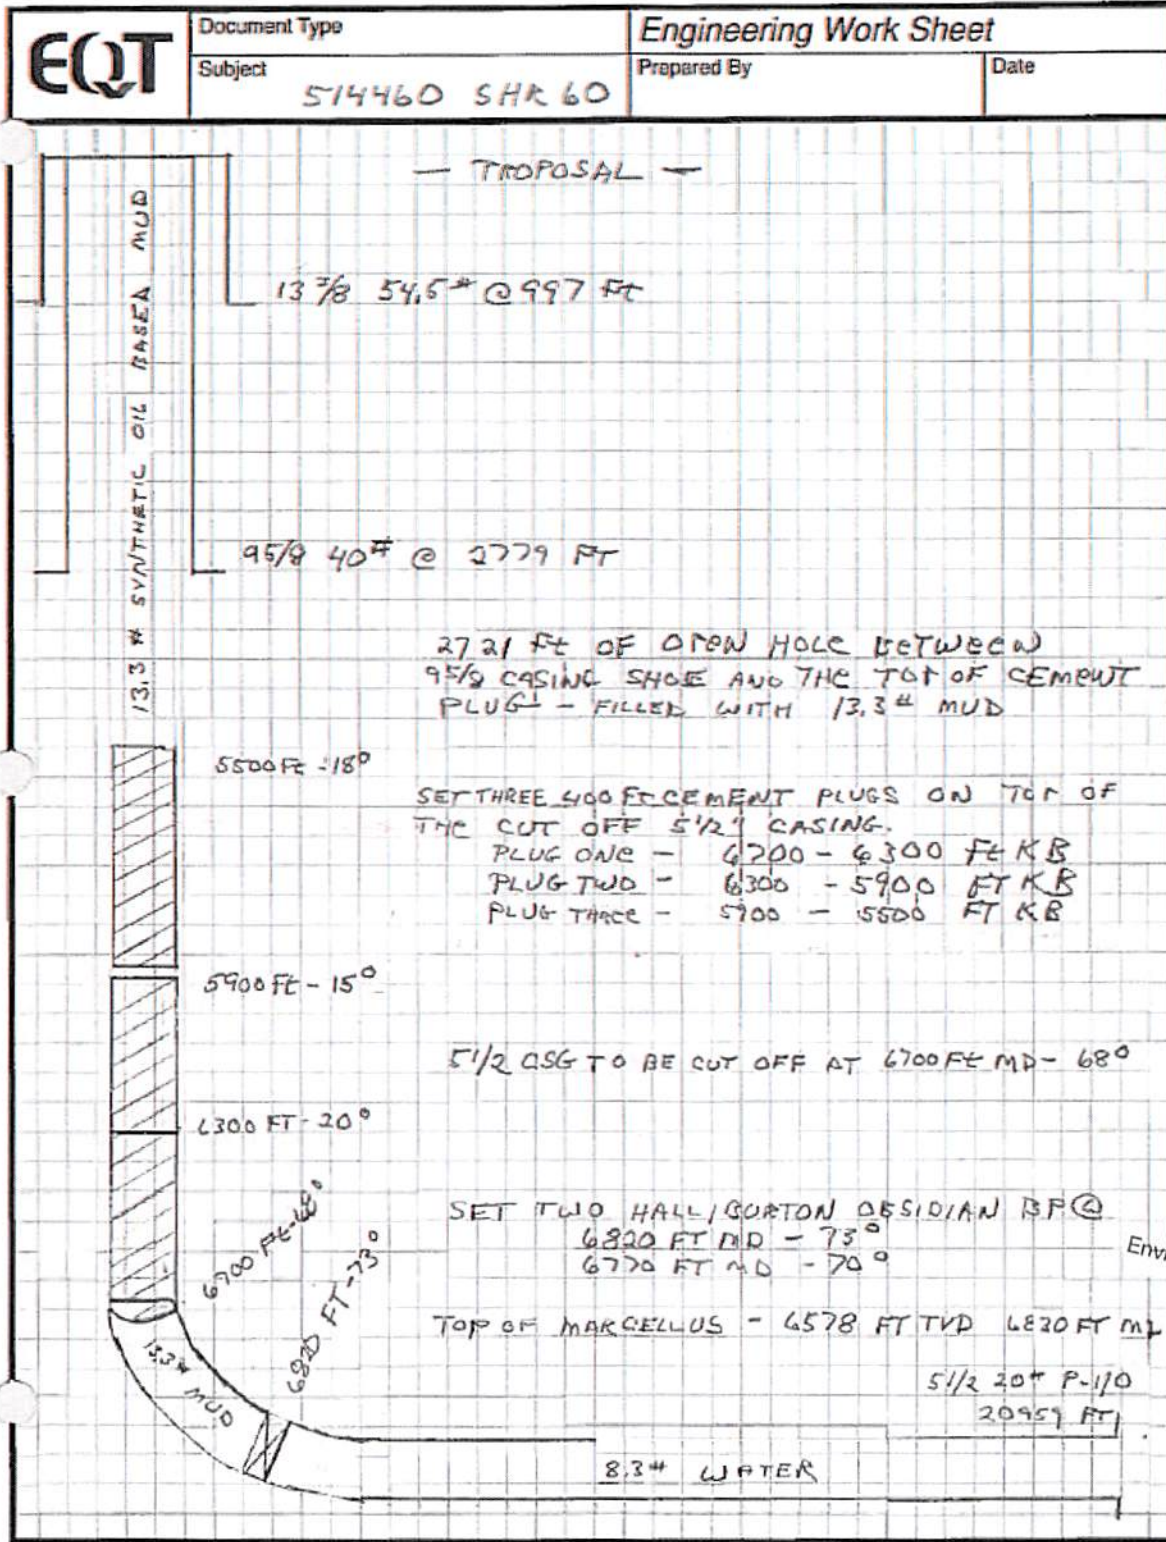 EQT
Document Type
Engineering Work Sheet
Subject
514460 SHR 60
Prepared By
Date
— PROPOSAL —
13 3/8 54.5# @ 997 Ft
13.3 # SYNTHETIC OIL BASED MUD
9 5/8 40# @ 2779 FT
2721 Ft OF OPEN HOLE BETWEEN
9 5/8 CASING SHOE AND THE TOP OF CEMENT
PLUG - FILLED WITH 13.3# MUD
5500 Ft - 18°
SET THREE 400 Ft CEMENT PLUGS ON TOP OF
THE CUT OFF 5 1/2" CASING.
PLUG ONE - 6700 - 6300 Ft KB
PLUG TWO - 6300 - 5900 FT KB
PLUG THREE - 5900 - 5500 FT KB
5900 Ft - 15°
5 1/2 CSG TO BE CUT OFF AT 6700 Ft MD - 68°
6300 FT - 20°
6700 Ft - 68°
6820 FT - 73°
SET TWO HALLIBURTON OBSIDIAN BP @
6820 FT MD - 73°
6770 FT MD - 70°
Envi
TOP OF MARCELLUS - 6578 FT TVD 6830 FT MD
13.3# MUD
5 1/2 20# P-110
20959 FT
8.3# WATER